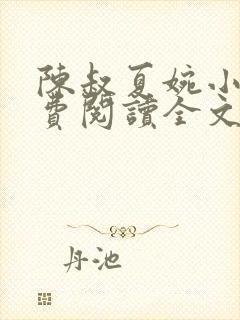 陳叔夏婉小
費閱讀全文
丹池